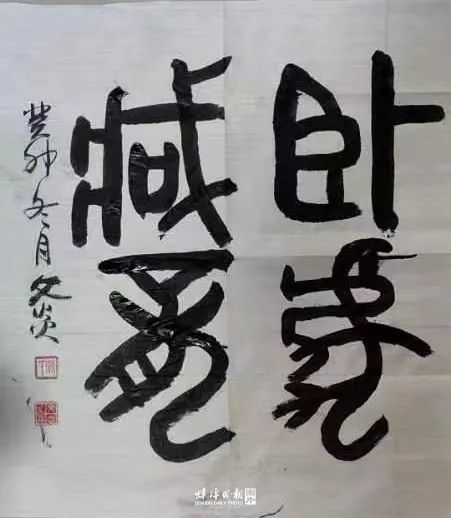 卧虎
臧龙
癸卯冬月文炎
蚌埠日报
BENGBU DAILY PHOTO